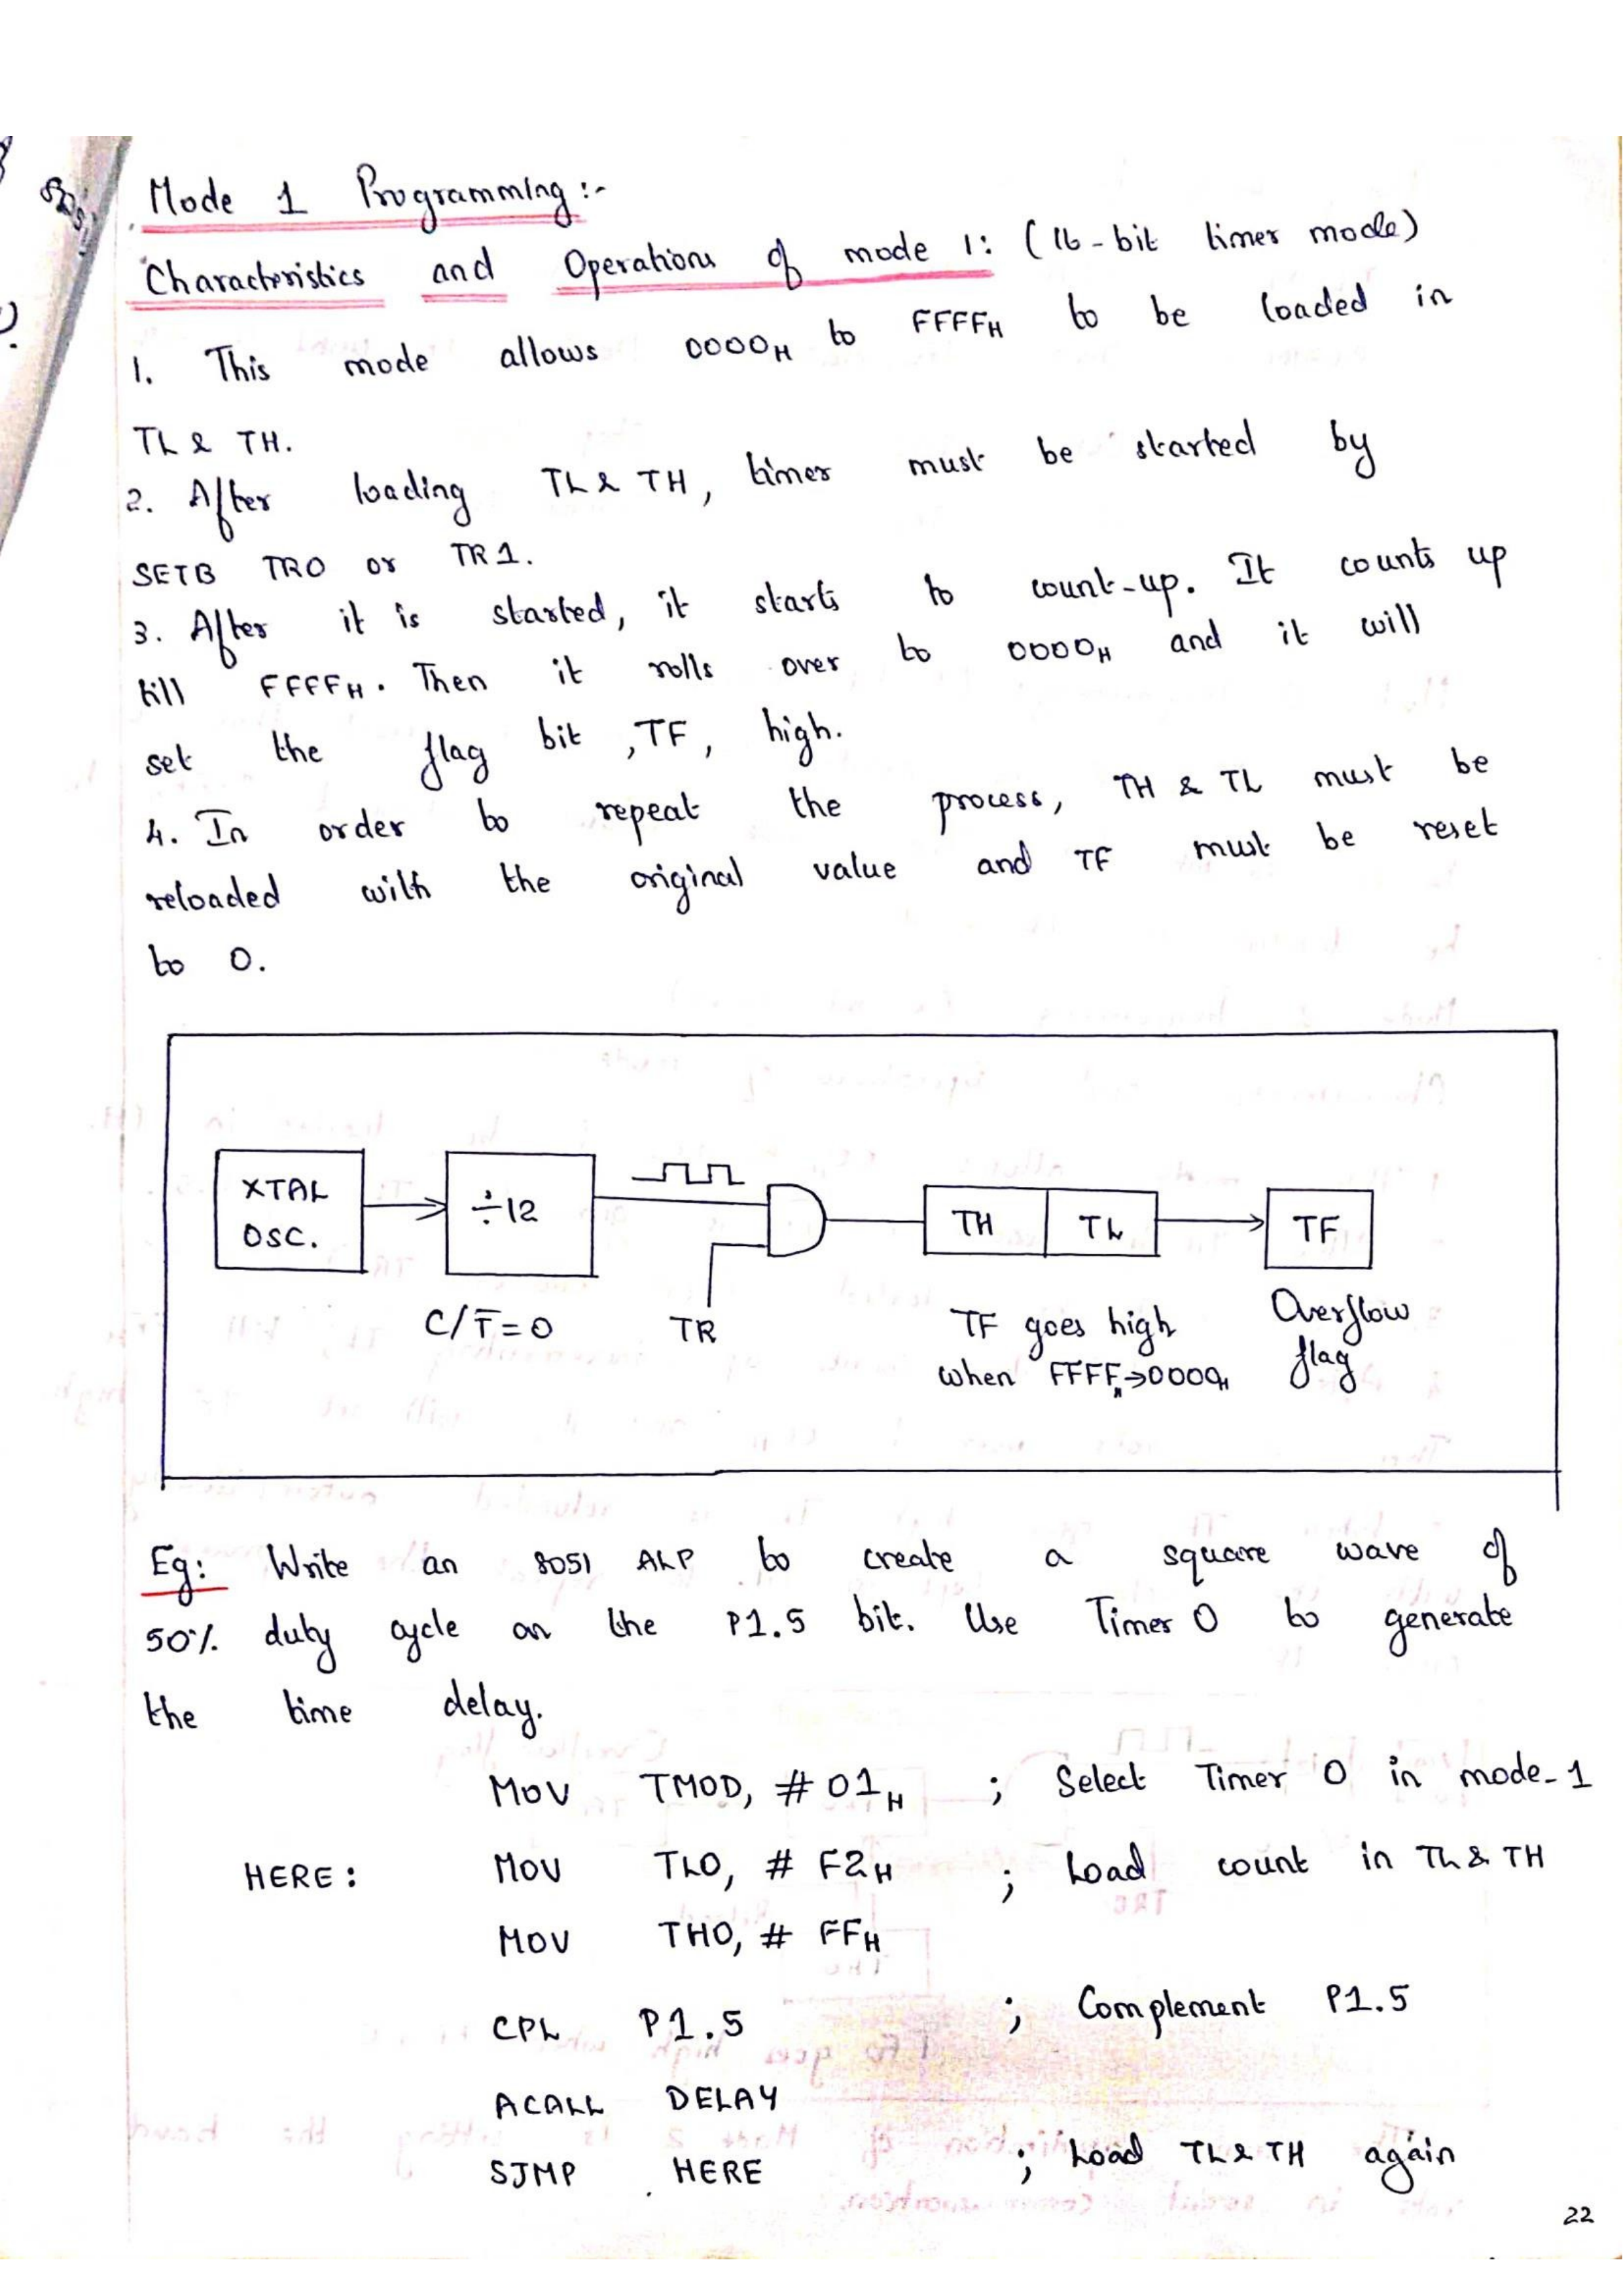 Mode 1 Programming:-
Characteristics and Operations of mode 1: (16-bit timer mode)
1. This mode allows 0000H to FFFFH to be loaded in
TL & TH.
2. After loading TL & TH, timer must be started by
SETB TR0 or TR1.
3. After it is started, it starts to count-up. It counts up
till FFFFH. Then it rolls over to 0000H and it will
set the flag bit, TF, high.
4. In order to repeat the process, TH & TL must be
reloaded with the original value and TF must be reset
to 0.
XTAL
OSC.
÷12
TH TL
TF
C/T̅=0
TR
TF goes high
when FFFFH→0000H
Overflow
flag
Eg: Write an 8051 ALP to create a square wave of
50% duty cycle on the P1.5 bit. Use Timer 0 to generate
the time delay.
MOV TMOD, #01H ; Select Timer 0 in mode-1
HERE: MOV TL0, #F2H ; Load count in TL & TH
MOV TH0, #FFH
CPL P1.5 ; Complement P1.5
ACALL DELAY
SJMP HERE ; Load TL & TH again
22